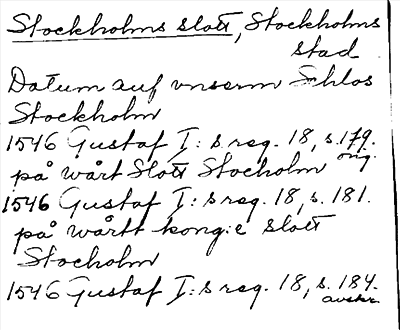 Stockholms slott, Stockholms
stad
Datum auf vnserm Schlos
Stockholm
1546 Gustaf I:s reg. 18, s. 179.
orig.
på wårt Slott Stocholm
1546 Gustaf I:s reg. 18, s. 181.
på wårtt kong:e slott
Stocholm
1546 Gustaf I:s reg. 18, s. 184.
avskr.